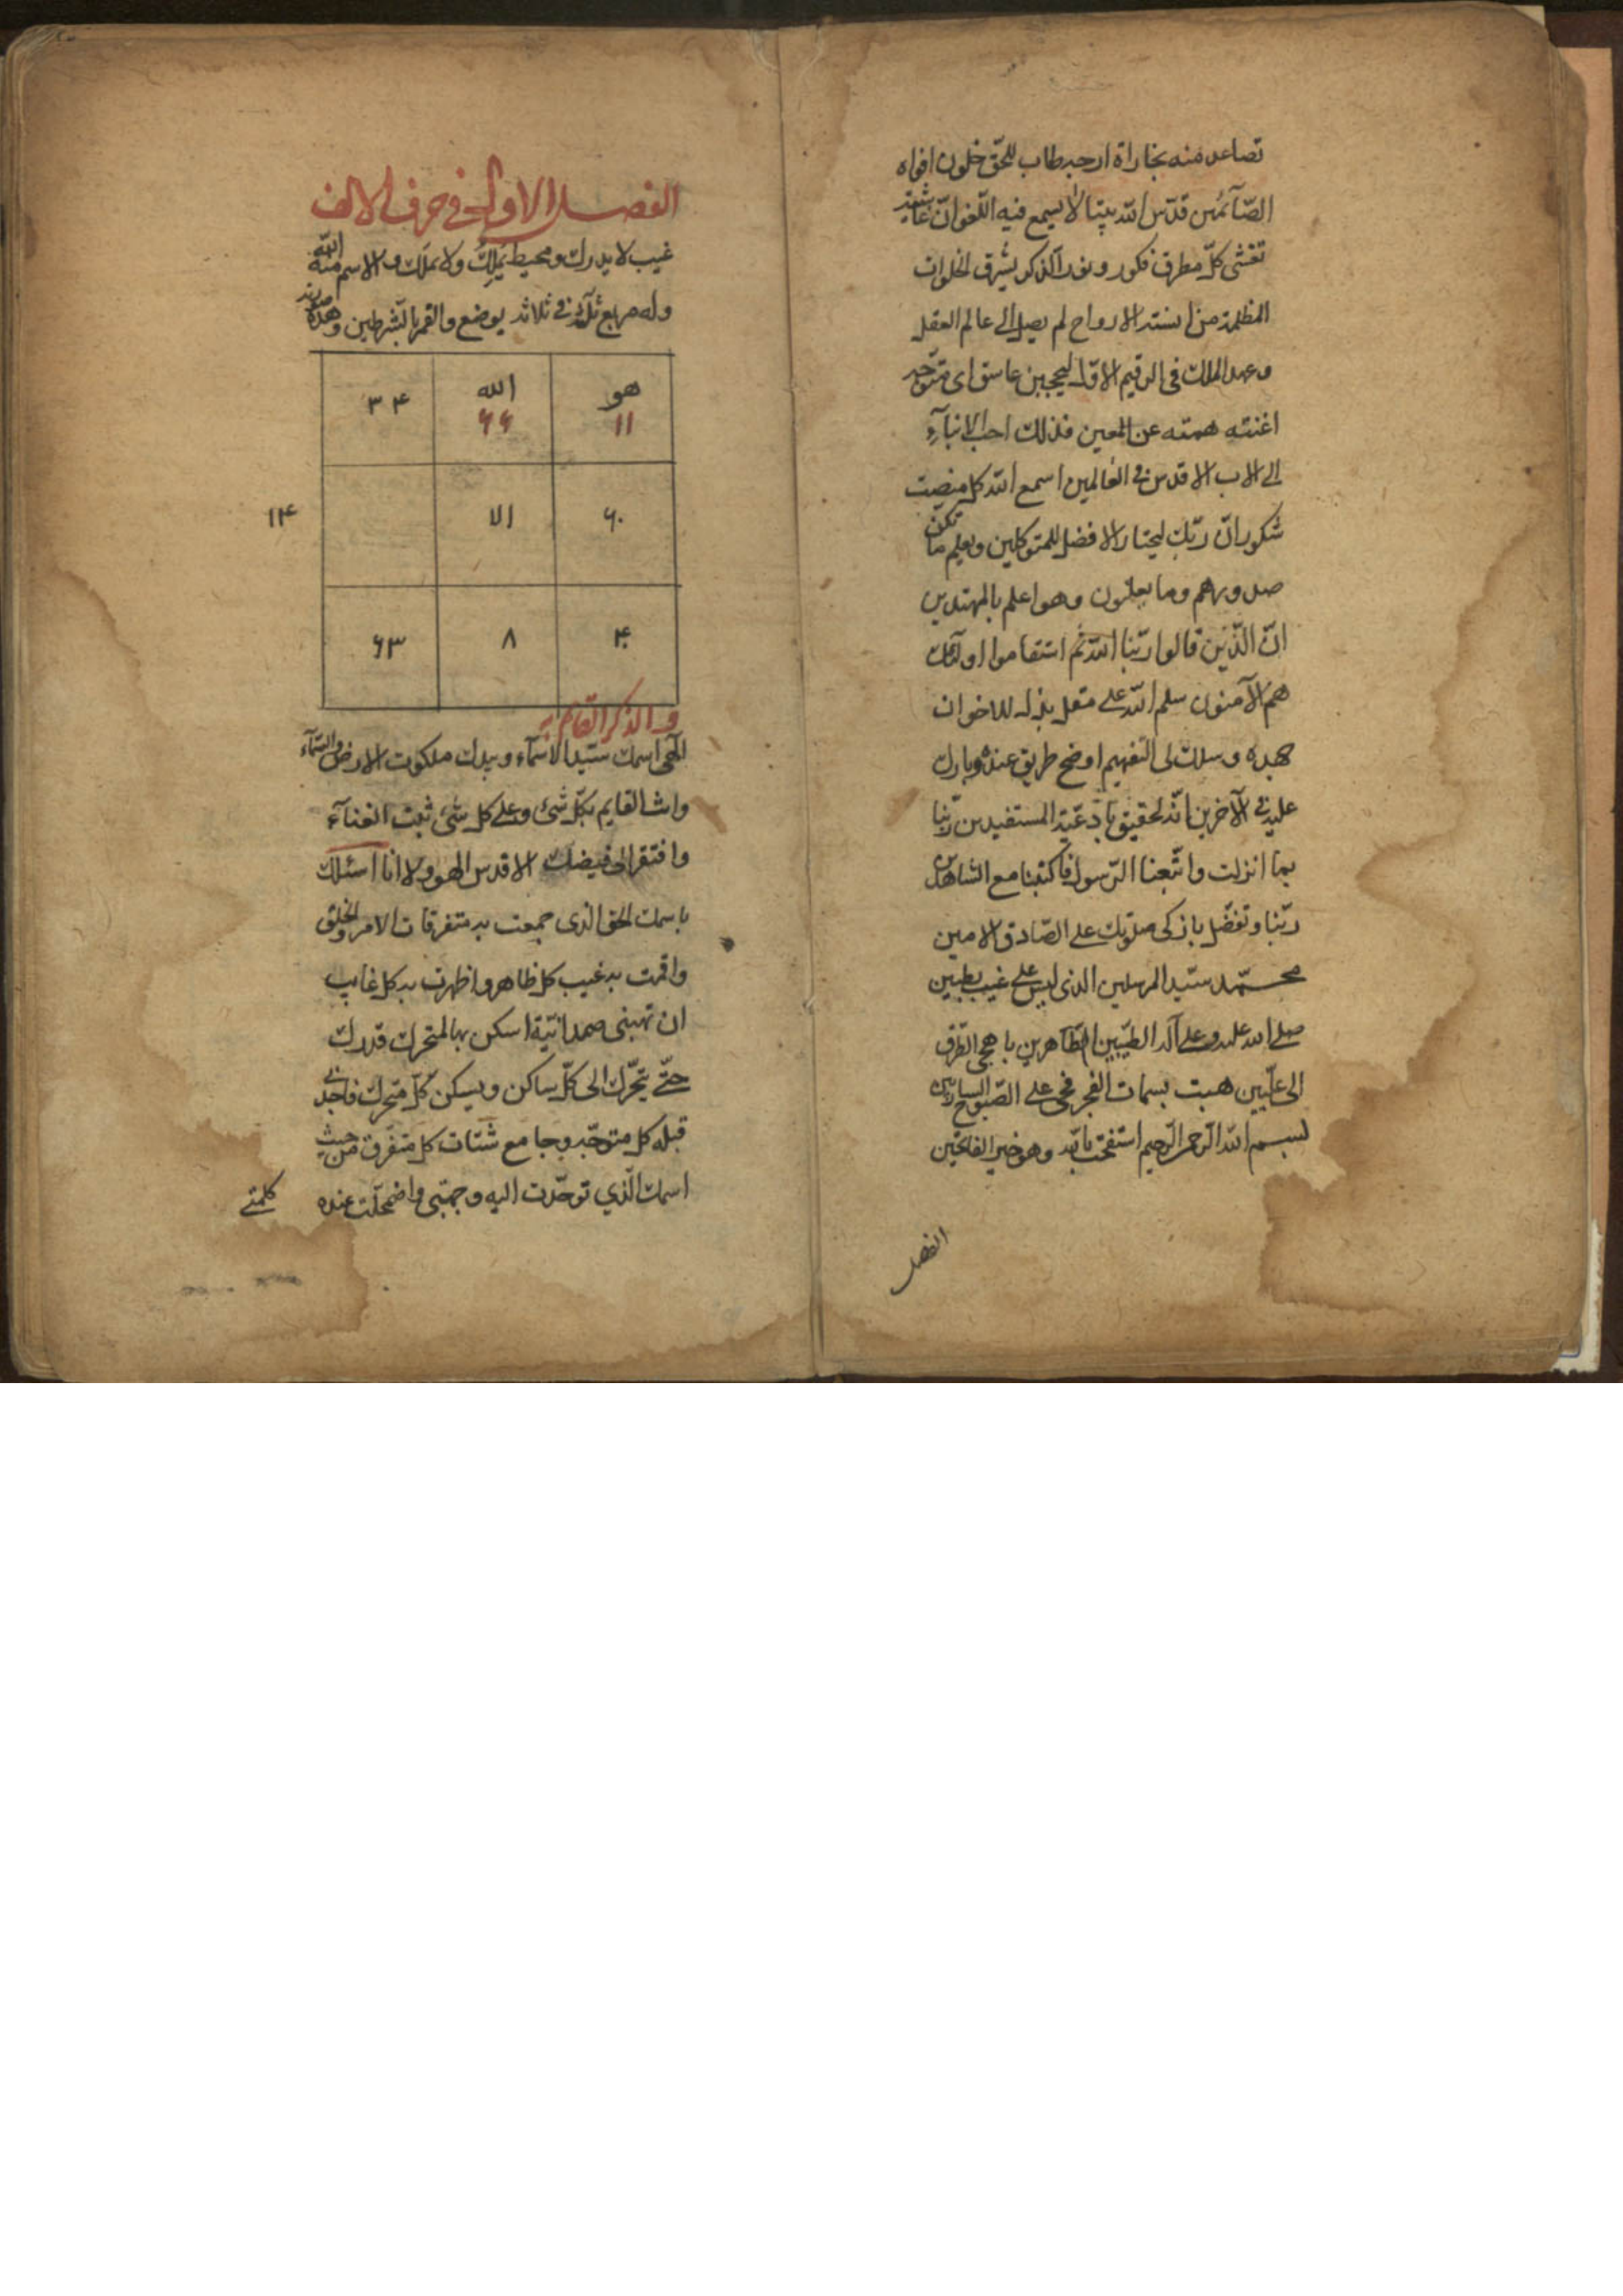 تصاعد منه بخاراة ارجه طاب للحق خلون افواه
الصّآئمين قدّس الله بيتا لا يسمع فيه اللّغو انّ غاشية
تغشى كلّ مطرق فكور ونور الذكر يشرق الخلوات
المظلمة من استد الارواح لم يصل الى عالم العقل
وعهد الملك فى الرقيم الاوّل ليجيبن عاشق اى متوحّد
اغنته همته عن المعين فذلك احب الانبآء
الى الاب الاقدس فى العالمين اسمع الله كل منصت
شكور انّ ربّك ليختار الافضل للمتوكلين ويعلم ما تكنّ
صدورهم وما يعلنون وهو اعلم بالمهتدين
انّ الّذين قالوا ربّنا الله ثم استقاموا اولآئك
هم الآمنون سلم الله على متعل بذل للاخوان
جهده وسلك لى التفهيم اوضح طريق عنده وبارك
عليه فى الآخرين انّه لحقيق بادعية المستفيدين ربّنا
بما انزلت واتّبعنا الرّسول فاكتبنا مع الشاهدين
ربّنا وتفضّل بازكى صلوتك على الصّادق الامين
محمّد سيّد المرسلين الذى ليس على غيب بظنين
صلى الله عليه وعلى آله الطيّبين الطّاهرين ناهجى الطّرق
الى علّيين هبت بسمات الفجر فحى على الصّبوح
بسم الله الرحمن الرحيم استفتحت بالله وهو خير الفاتحين
الفصل
الفصل الاول فى حرف الالف
غيب لا يدرك ومحيط يملك ولا يملك والاسم منه الله
وله مربع ثلاثة فى ثلاثة يوضع والقمر بالشرطين وهذه صورته
هو ١١ الله ٦٦ ٣۴
٦٠ الا ١۴
۴٠ ٨ ٦٣
والذكر القائم به
الٓهى اسمك سيّد الاسمآء وبيدك ملكوت الارض والسّمآء
وانت القايم بكلّ شئ وعلى كل شئ ثبت الغنآء
وافتقر الى فيضك الاقدس الهو ولا انا اسئلك
باسمك الحق الذى جمعت به متفرقات الامر والخلق
واقمت به غيب كل ظاهر واظهرت به كل غايب
ان تهبنى صمدانيّة اسكن بها المتحرك قدرك
حتّى يتحرّك الى كلّ ساكن ويسكن كلّ متحرك فاجدنى
قبلة كل متوجّه وجامع شتات كل متفرق من حيث
اسمك الّذي توحّدت اليه وجهتى واضمحلّت عنده
كلمتى